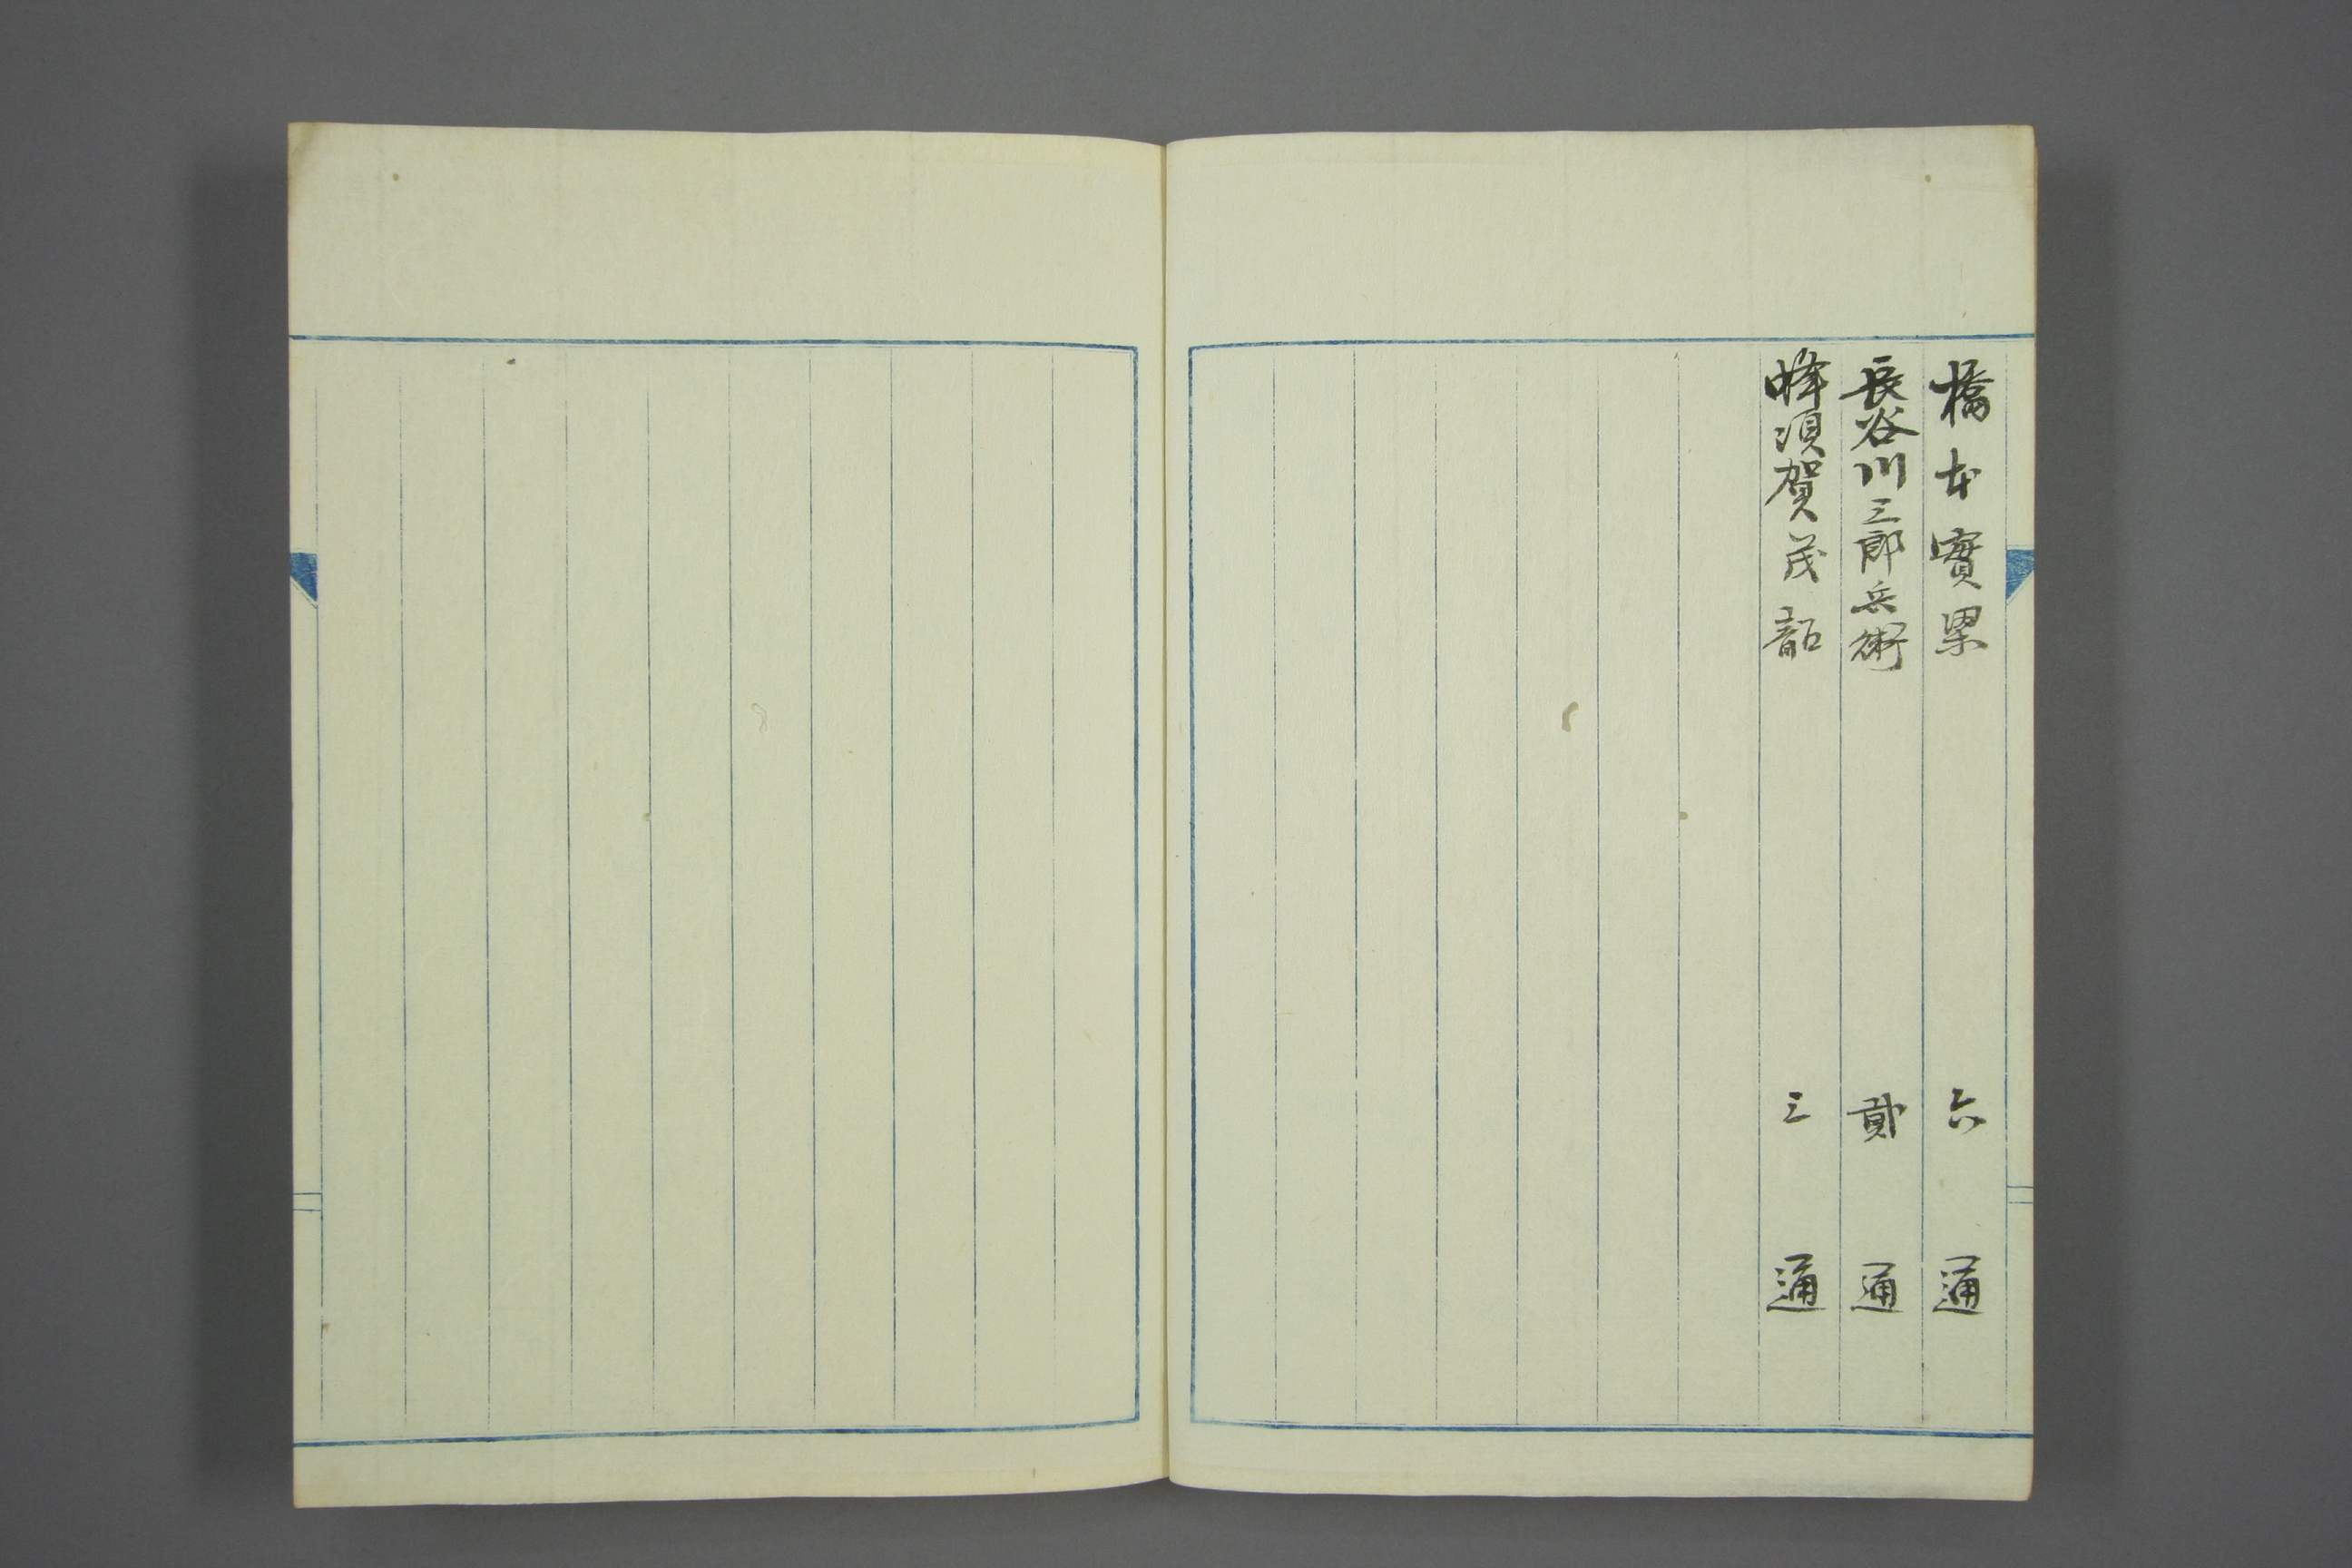 橋本實梁 六通
長谷川三郎兵衛 貳通
蜂須賀茂韶 三通